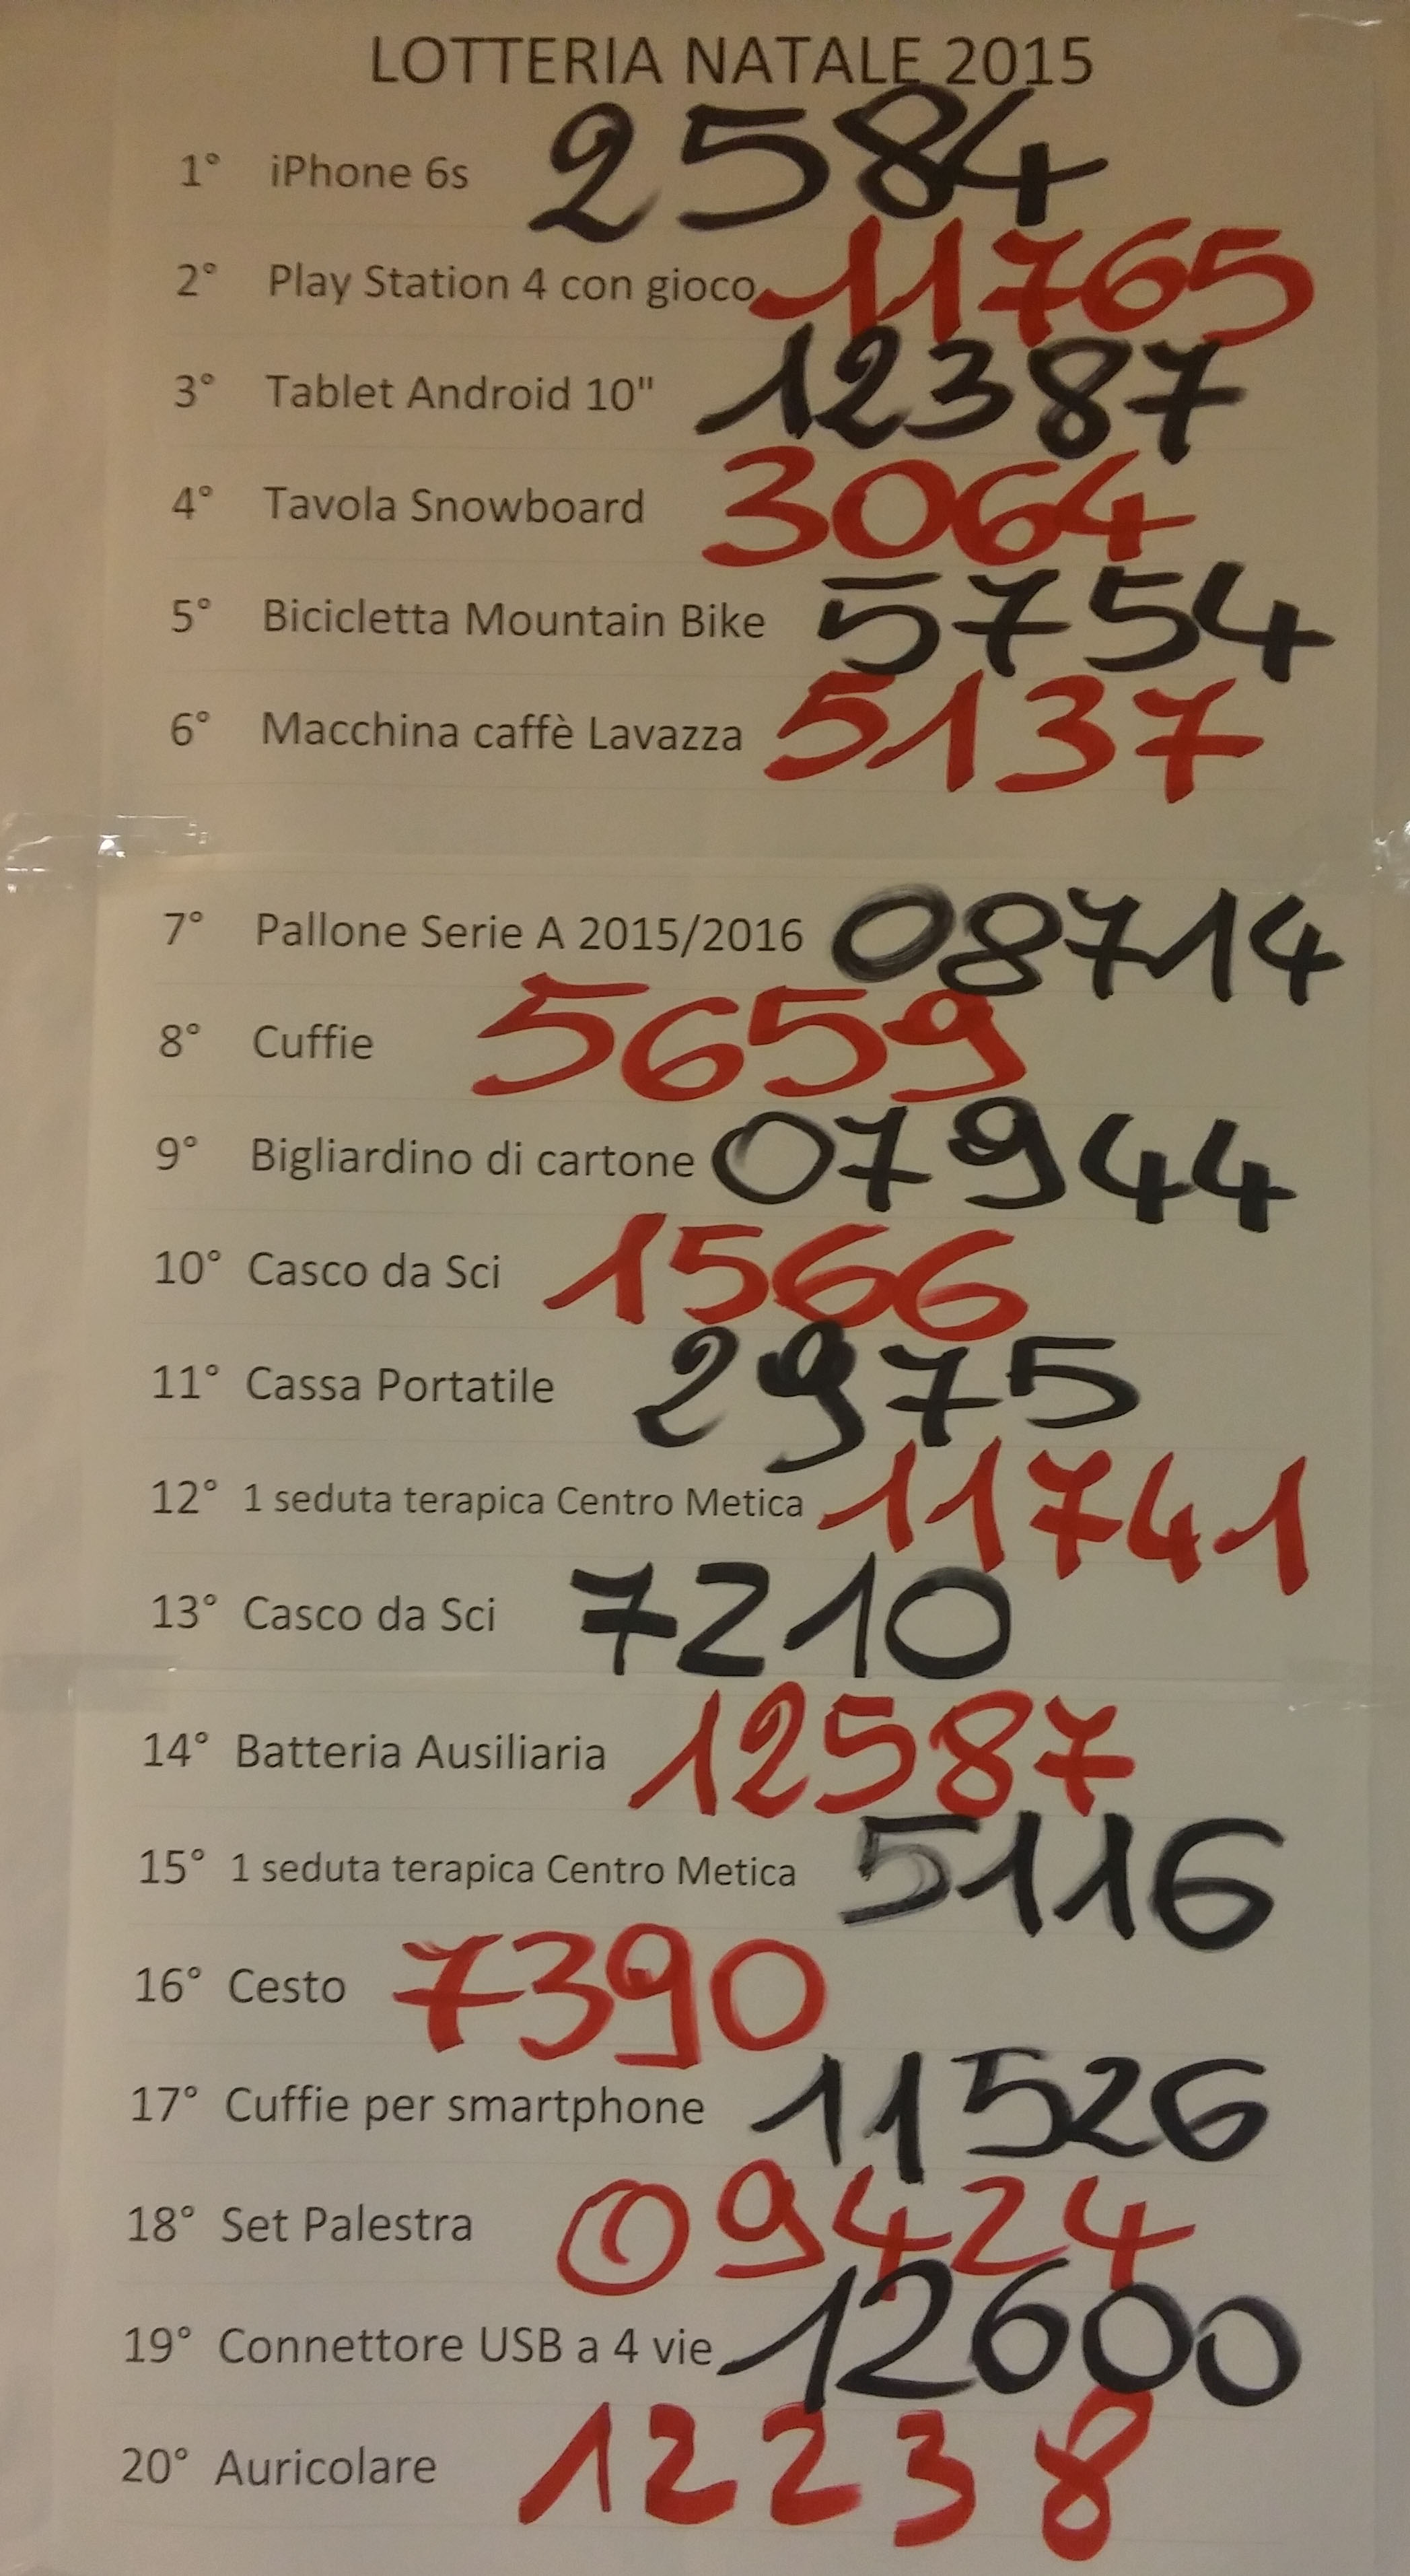 LOTTERIA NATALE 2015
1° iPhone 6s 2584
2° Play Station 4 con gioco 11765
3° Tablet Android 10" 12387
4° Tavola Snowboard 3064
5° Bicicletta Mountain Bike 5754
6° Macchina caffè Lavazza 5137
7° Pallone Serie A 2015/2016 08714
8° Cuffie 5659
9° Bigliardino di cartone 07944
10° Casco da Sci 1566
11° Cassa Portatile 2975
12° 1 seduta terapica Centro Metica 11741
13° Casco da Sci 7210
14° Batteria Ausiliaria 12587
15° 1 seduta terapica Centro Metica 5116
16° Cesto 7390
17° Cuffie per smartphone 11526
18° Set Palestra 09424
19° Connettore USB a 4 vie 12600
20° Auricolare 12238